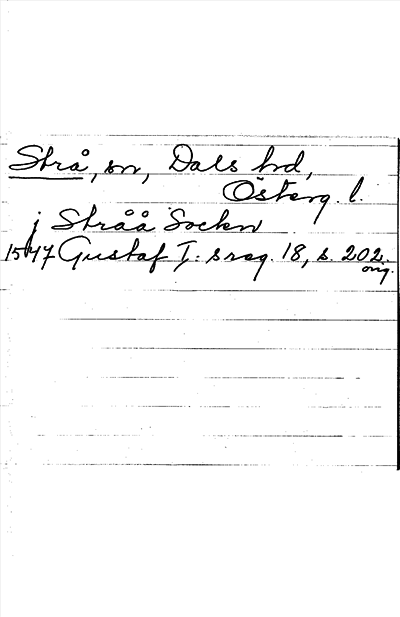 Strå, sn, Dals hd,
Österg. l.
j Stråå Sockn
1547 Gustaf I: s reg. 18, s. 202.
orig.